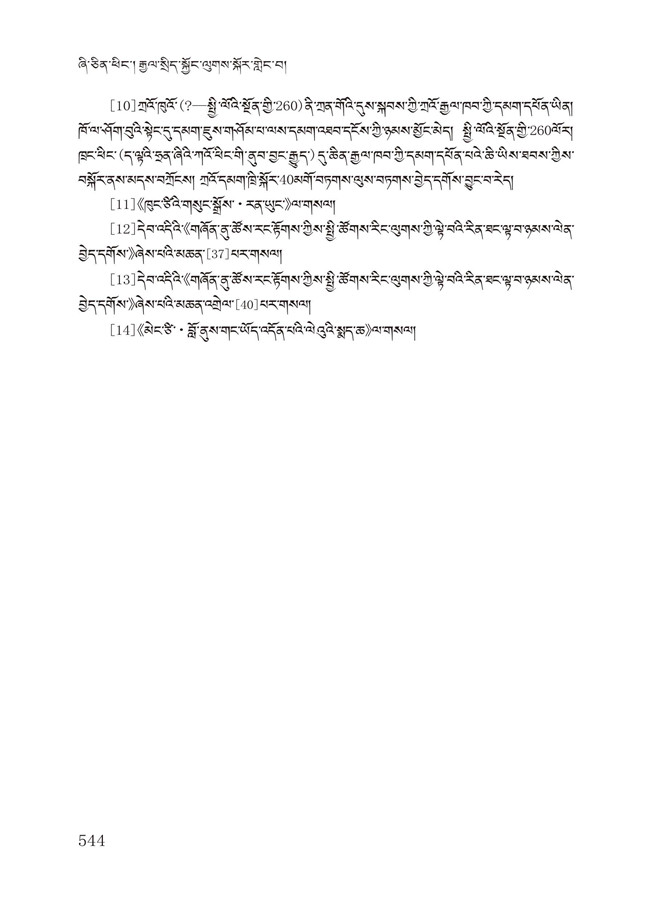 ཞི་ཅིན་ཕིང་། རྒྱལ་སྲིད་སྐྱོང་ལུགས་སྐོར་གླེང་བ།
[10]ཀྲའོ་ཁུའོ་(?—སྤྱི་ལོའི་སྔོན་གྱི་260)ནི་ཀྲན་གོའི་དུས་སྐབས་ཀྱི་ཀྲའོ་རྒྱལ་ཁབ་ཀྱི་དམག་དཔོན་ཡིན།
ཁོ་ལ་ཤོག་བུའི་སྟེང་དུ་དམག་ཇུས་གཤོམ་པ་ལས་དམག་འཐབ་དངོས་ཀྱི་ཉམས་མྱོང་མེད། སྤྱི་ལོའི་སྔོན་གྱི་260ལོར།
ཁྲང་ཕིང་(ད་ལྟའི་ཧྲན་ཞིའི་ཀའོ་ཕིང་གི་ནུབ་བྱང་རྒྱུད་)དུ་ཆིན་རྒྱལ་ཁབ་ཀྱི་དམག་དཔོན་པའེ་ཆི་ཡིས་ཐབས་ཀྱིས་
བསྐོར་ནས་མདས་བཀྲོངས། ཀྲའོ་དམག་ཁྲི་སྐོར་40མགོ་བཏགས་ལུས་བཏགས་བྱེད་དགོས་བྱུང་བ་རེད།
[11]《ཁུང་ཙིའི་གསུང་སྒྲོས་·རན་ཡུང་》ལ་གསལ།
[12]དེབ་འདིའི་《གཞོན་ནུ་ཚོས་རང་རྟོགས་ཀྱིས་སྤྱི་ཚོགས་རིང་ལུགས་ཀྱི་ལྟེ་བའི་རིན་ཐང་ལྟ་བ་ཉམས་ལེན་
བྱེད་དགོས་》ཞེས་པའི་མཆན་[37]པར་གསལ།
[13]དེབ་འདིའི་《གཞོན་ནུ་ཚོས་རང་རྟོགས་ཀྱིས་སྤྱི་ཚོགས་རིང་ལུགས་ཀྱི་ལྟེ་བའི་རིན་ཐང་ལྟ་བ་ཉམས་ལེན་
བྱེད་དགོས་》ཞེས་པའི་མཆན་འགྲེལ་[40]པར་གསལ།
[14]《མེང་ཙི་·བློ་ནུས་གང་ཡོད་འདོན་པའི་ལེའུའི་སྨད་ཆ》ལ་གསལ།
544